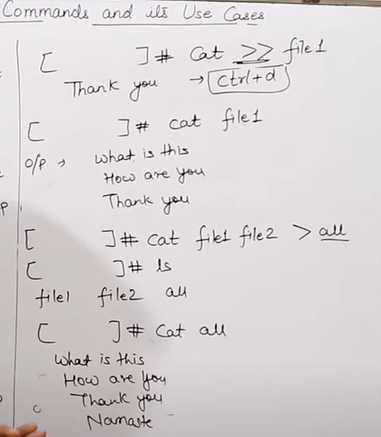 Commands and its Use Cases
[ ]# Cat >> file1
Thank you → Ctrl+d
[ ]# cat file1
O/P → what is this
How are you
Thank you
[ ]# cat file1 file2 > all
[ ]# ls
file1 file2 all
[ ]# Cat all
What is this
How are You
Thank you
Namaste